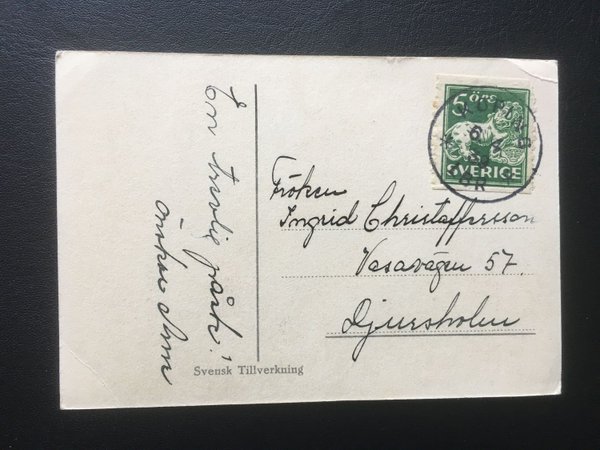 En trevlig påsk!
önskar
5 ÖRE
SVERIGE
Fröken
Ingrid Christoffersson
Vasavägen 57.
Djursholm
Svensk Tillverkning